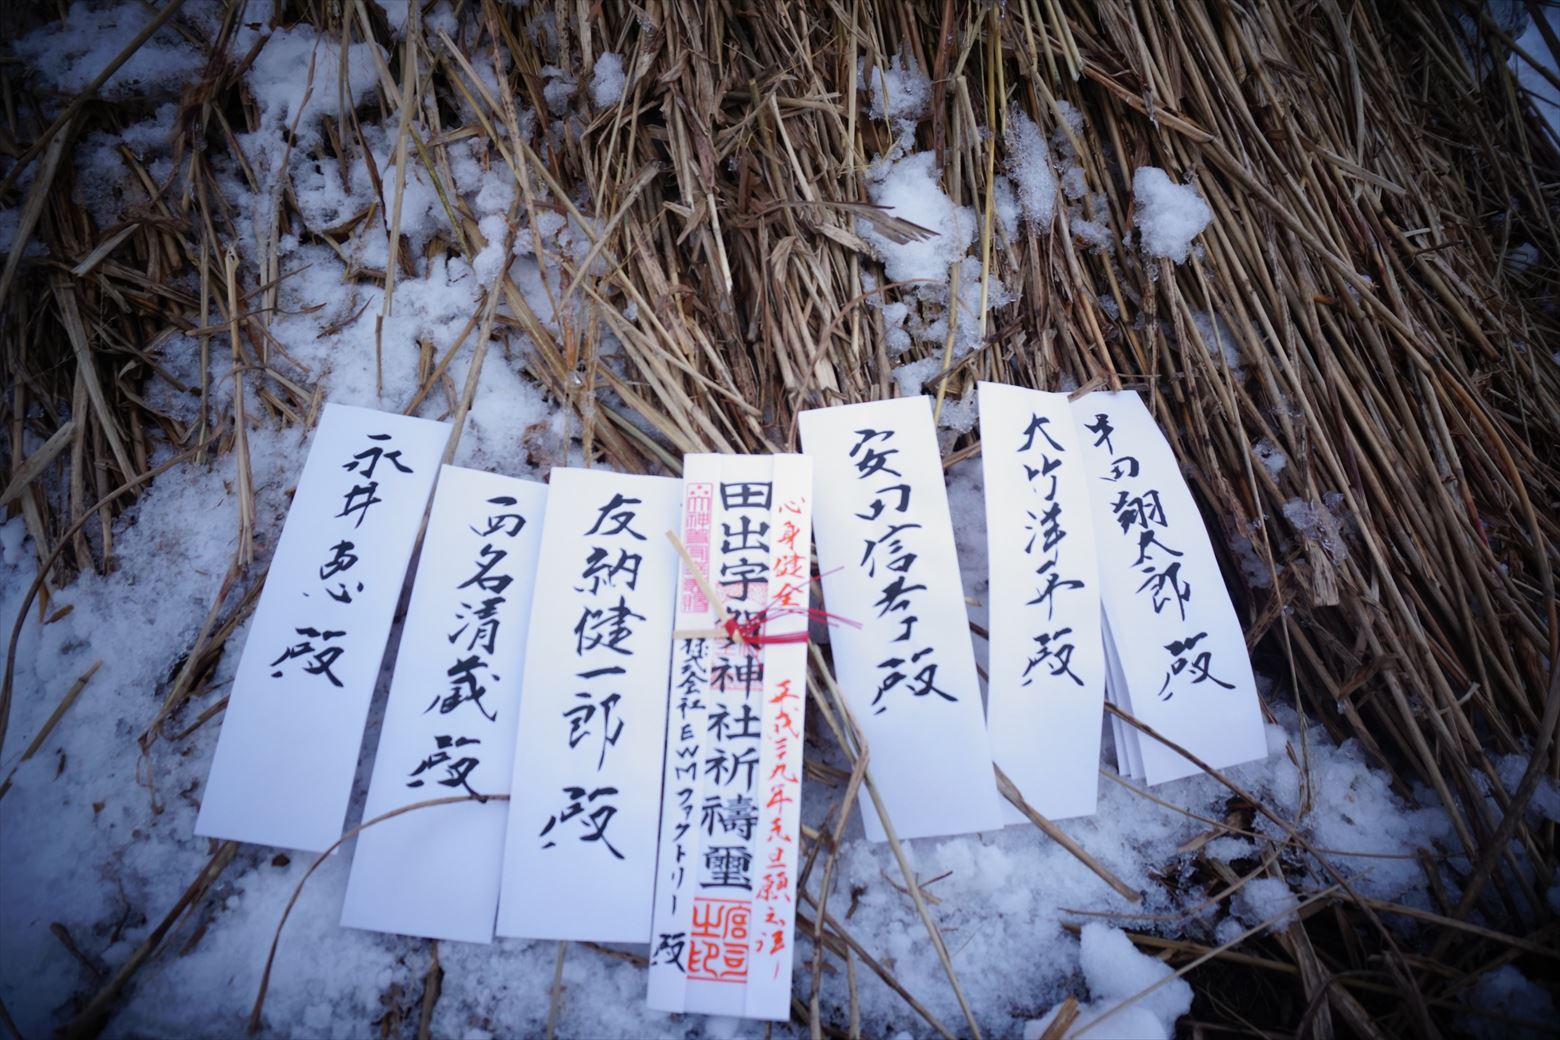 永井恵 殿
西名清蔵 殿
友納健一郎 殿
心身健全
田出宇賀神社祈禱璽
株式会社EWMファクトリー 殿
平成二十九年元旦
安田信孝 殿
大竹洋平 殿
半田翔太郎 殿